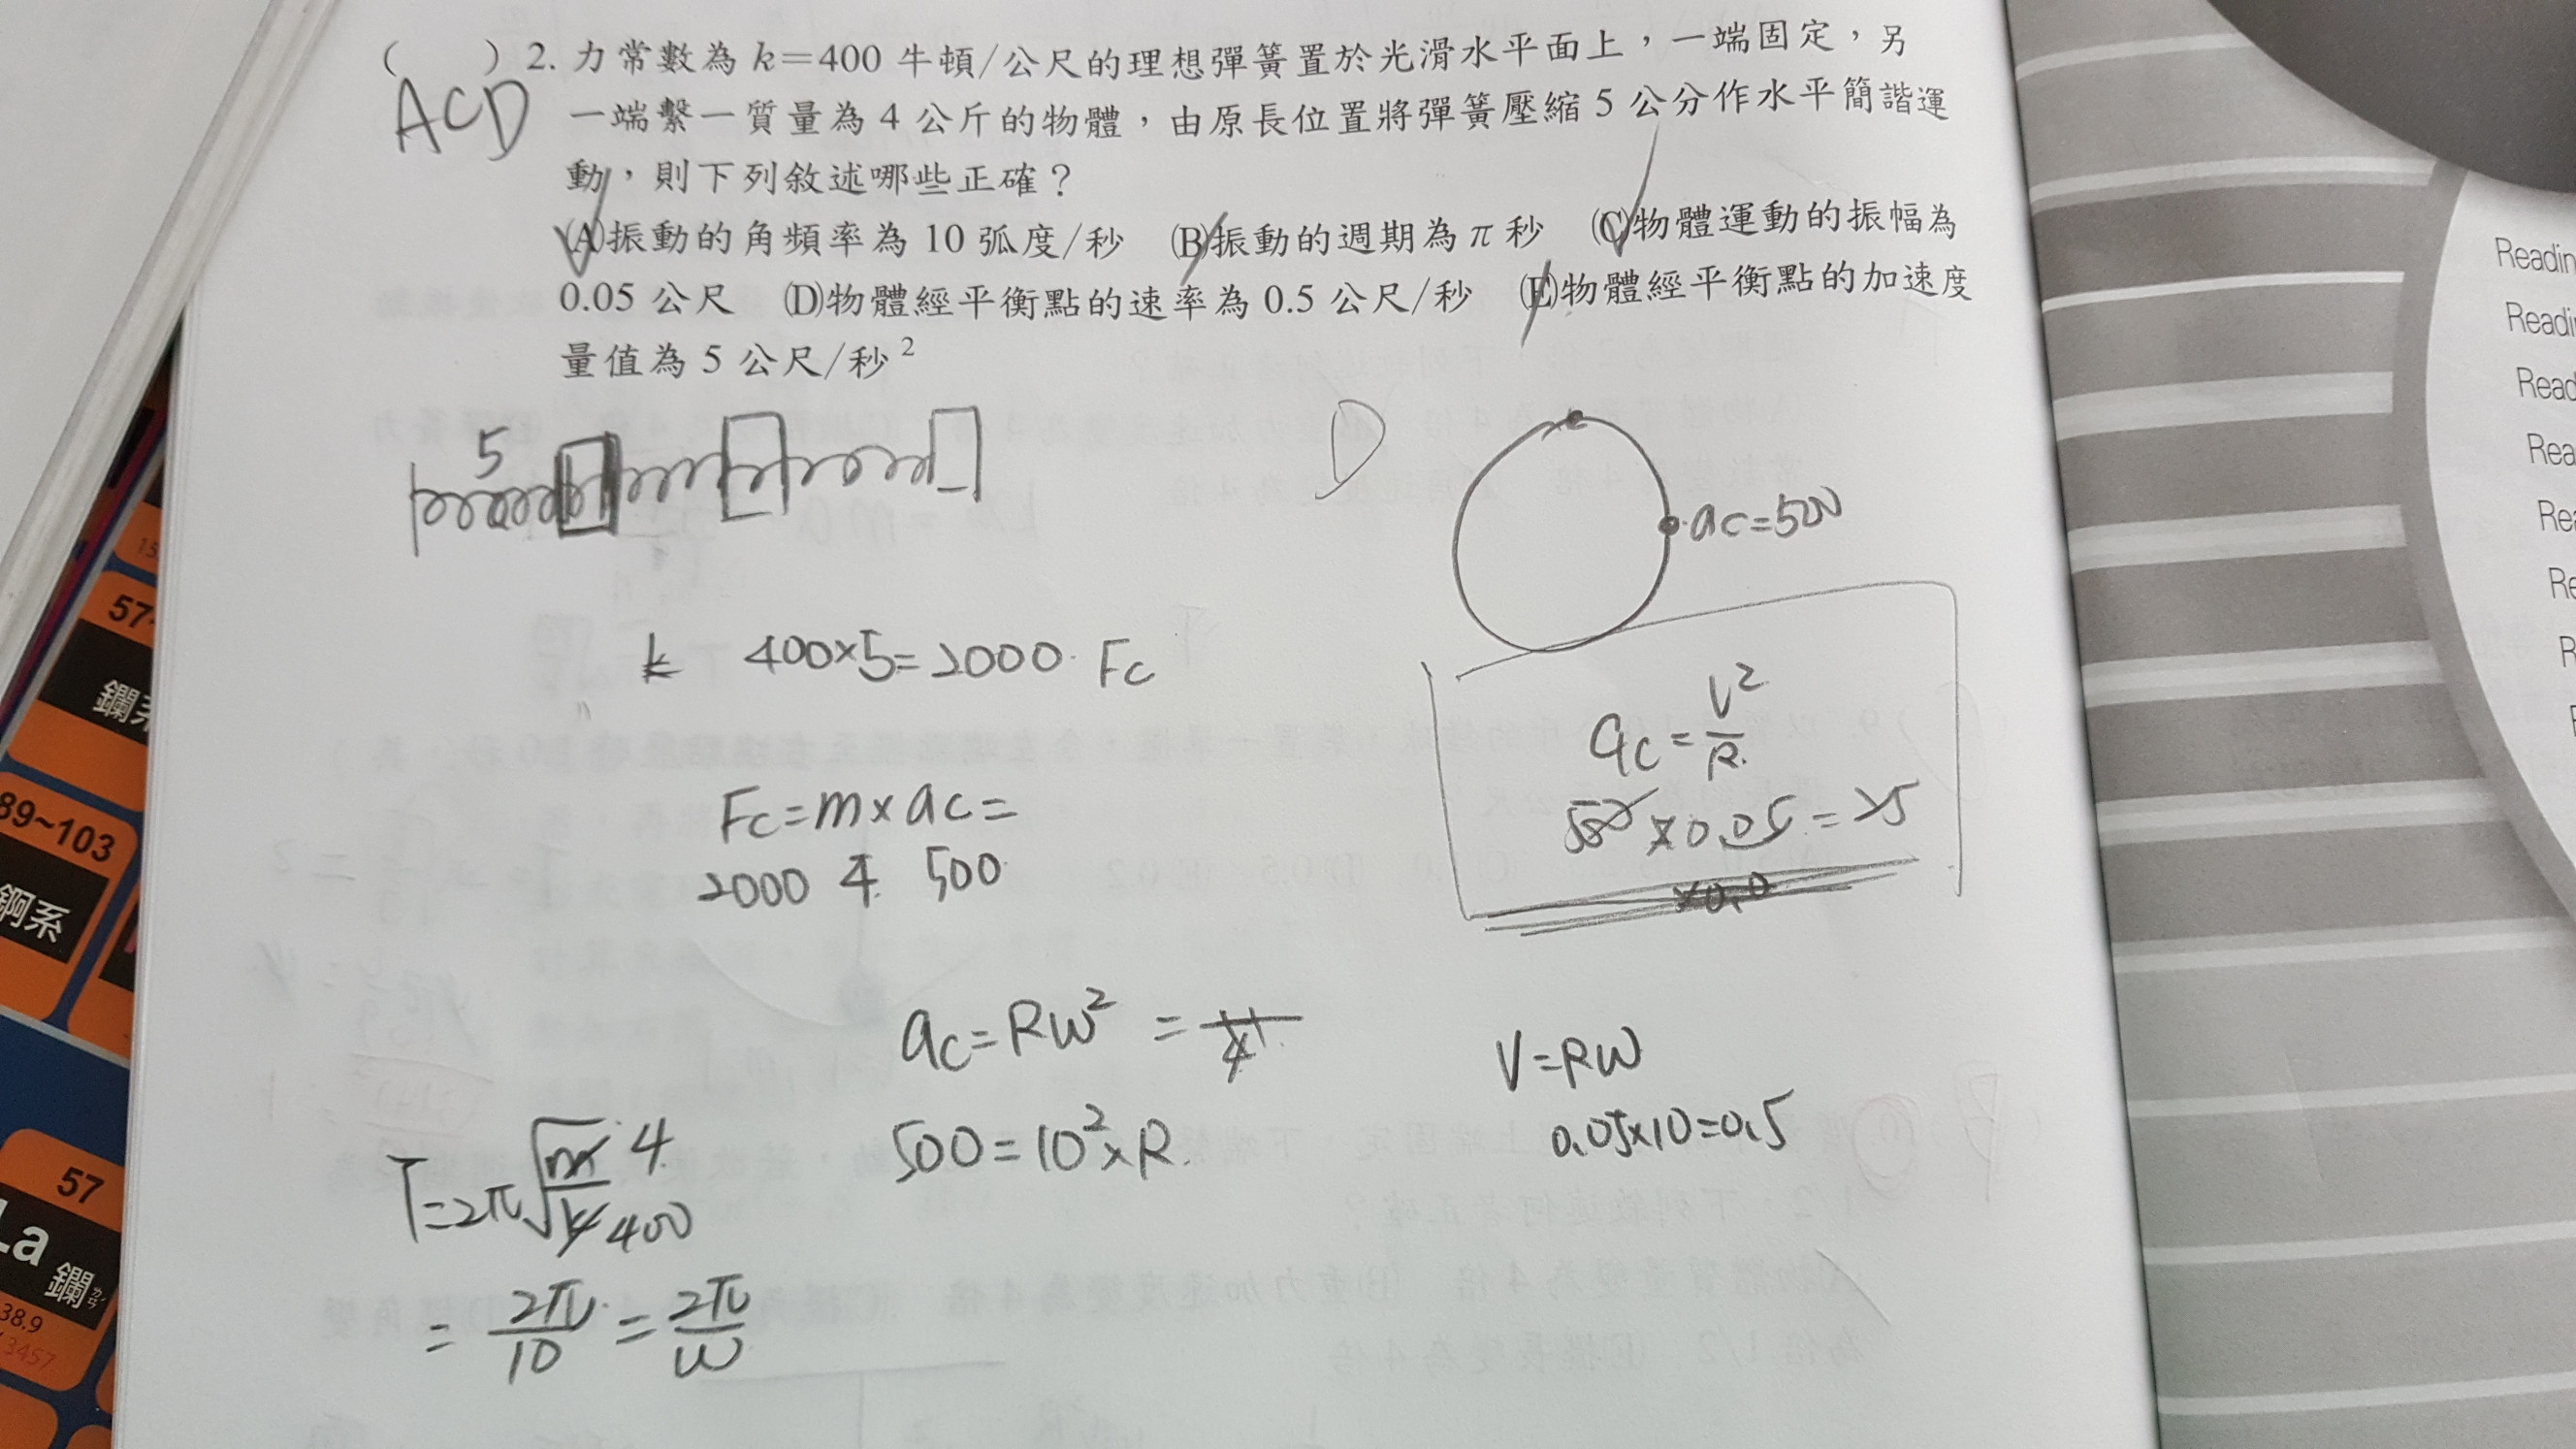 ( ) 2. 力常數為 k=400 牛頓/公尺的理想彈簧置於光滑水平面上，一端固定，另
ACD
一端繫一質量為 4 公斤的物體，由原長位置將彈簧壓縮 5 公分作水平簡諧運
動，則下列敘述哪些正確？
(A)振動的角頻率為 10 弧度/秒 (B)振動的週期為 π 秒 (C)物體運動的振幅為
0.05 公尺 (D)物體經平衡點的速率為 0.5 公尺/秒 (E)物體經平衡點的加速度
量值為 5 公尺/秒²
5
D
ac=500
k 400×5=2000 Fc
ac=V²/R
500×0.05=25
×0.0
Fc=m×ac=
2000 4 500
ac=Rω²=
500=10²×R
V=Rω
0.05×10=0.5
T=2π√(m/k) 4 400
=2π/10=2π/ω
57
鑭系
89~103
錒系
57
La
鑭
38.9
3457
Readin
Readi
Read
Rea
Re
Re
R
R